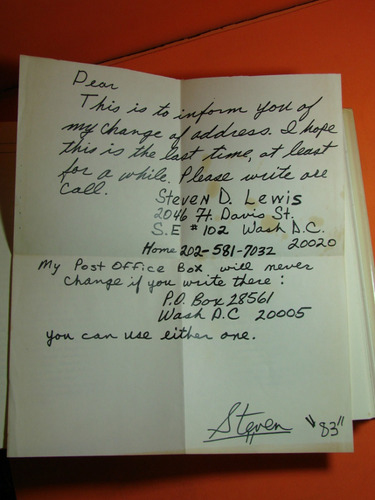 Dear
This is to inform you of
my change of address. I hope
this is the last time, at least
for a while. Please write are
call.
Steven D. Lewis
2046 Ft. Davis St.
S.E # 102 Wash D.C.
20020
Home 202-581-7032
My Post Office Box will never
change if you write there:
P.O. Box 28561
Wash D.C 20005
you can use either one.
Steven "83"